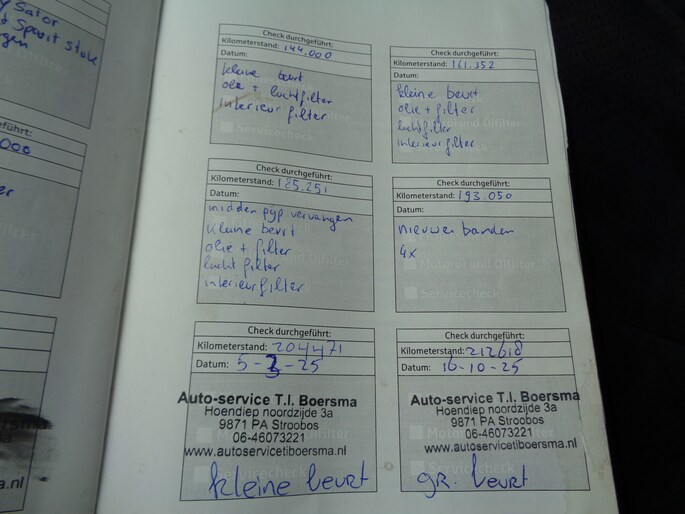 Sator
t Spuit stuk
gen
eführt:
000
er
führt:
a.nl
Check durchgeführt:
Kilometerstand: 144.000
Datum:
kleine beurt
olie + luchtfilter
interieurfilter
Servicecheck
Check durchgeführt:
Kilometerstand: 161.352
Datum:
kleine beurt
olie + filter
luchtfilter
interieurfilter
Check durchgeführt:
Kilometerstand: 185.251
Datum:
midden pyp vervangen
kleine beurt
olie + filter
lucht filter
interieurfilter
Check durchgeführt:
Kilometerstand: 193.050
Datum:
nieuwe banden
4x
Motoröl und Ölfilter
Servicecheck
Check durchgeführt:
Kilometerstand: 204471
Datum: 5-3-25
Auto-service T.I. Boersma
Hoendiep noordzijde 3a
9871 PA Stroobos
06-46073221
www.autoservicetiboersma.nl
Servicecheck
kleine beurt
Check durchgeführt:
Kilometerstand: 212618
Datum: 16-10-25
Auto-service T.I. Boersma
Hoendiep noordzijde 3a
9871 PA Stroobos
06-46073221
www.autoservicetiboersma.nl
Servicecheck
gr. beurt